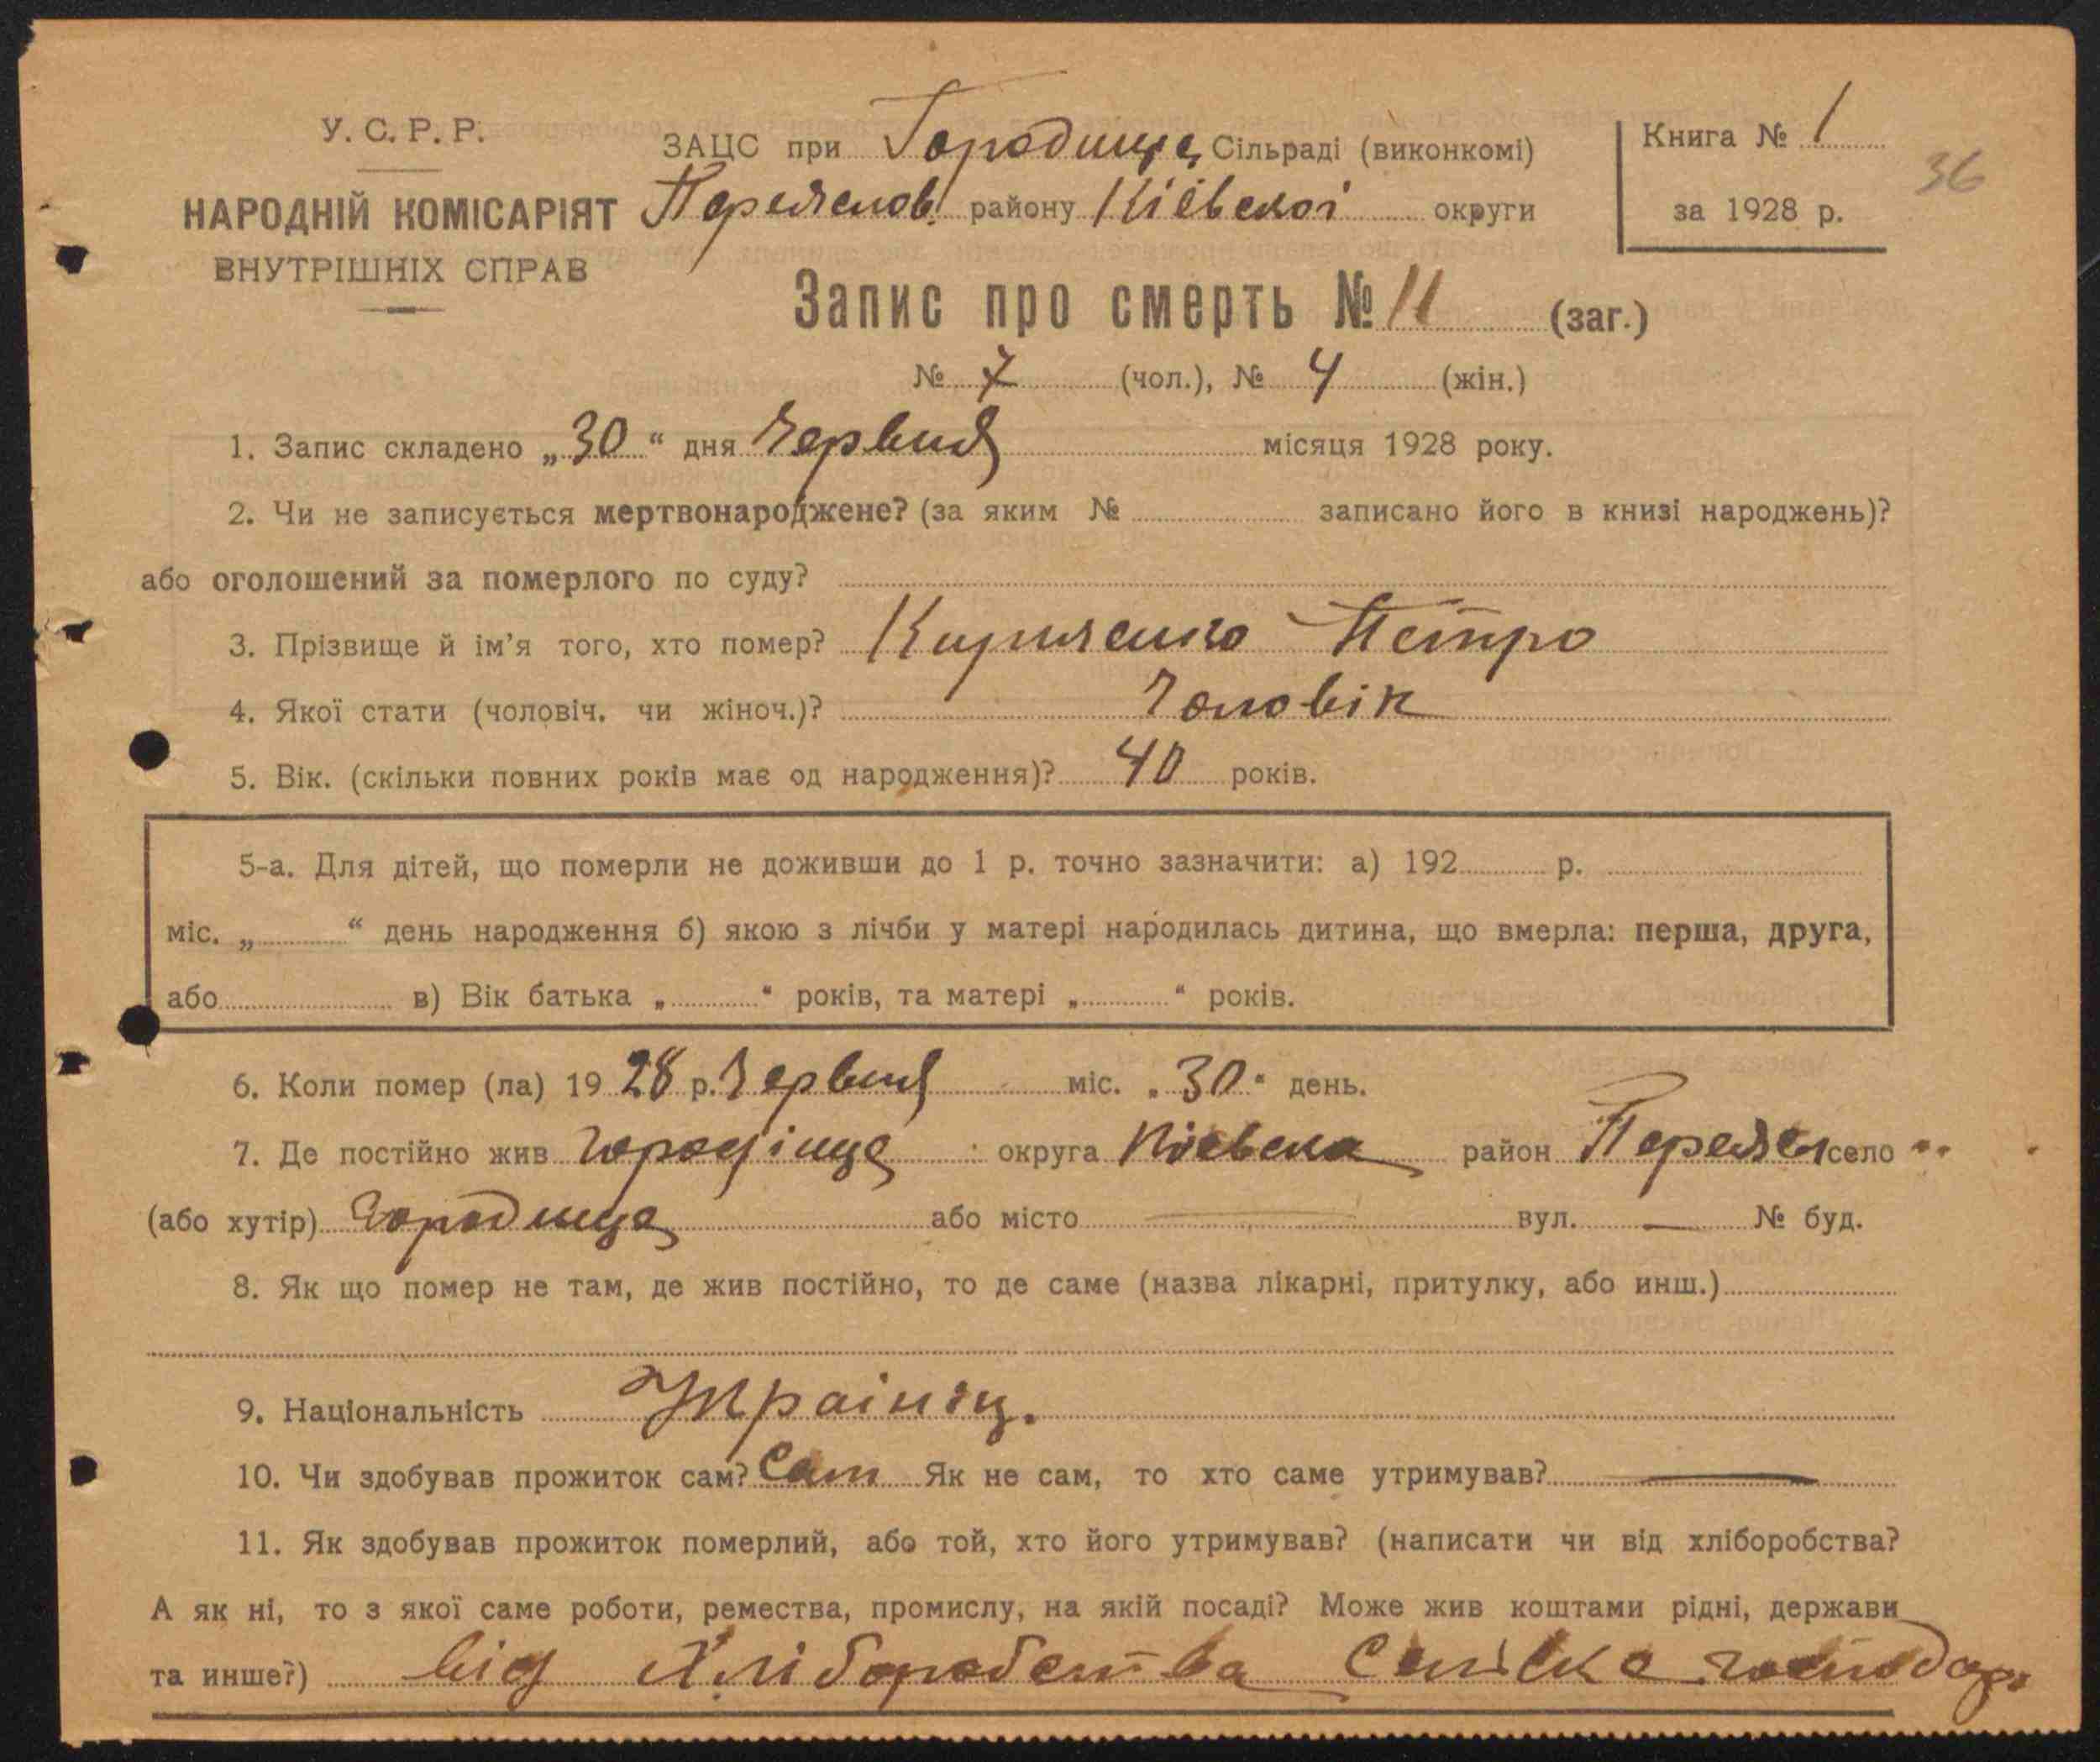 У. С. Р. Р.
НАРОДНІЙ КОМІСАРІЯТ
ВНУТРІШНІХ СПРАВ
ЗАЦС при Городище Сільраді (виконкомі)
Переяслов. району Кіівскоі округи
Книга № 1
за 1928 р.
36
Запис про смерть № 11 (заг.)
№ 7 (чол.), № 4 (жін.)
1. Запис складено „30“ дня Червня місяця 1928 року.
2. Чи не записується мертвонароджене? (за яким № записано його в книзі народжень)?
або оголошений за померлого по суду?
3. Прізвище й ім’я того, хто помер? Петро
4. Якої стати (чоловіч. чи жіноч.)? Чоловік
5. Вік. (скільки повних років має од народження)? 40 років.
5-а. Для дітей, що померли не доживши до 1 р. точно зазначити: а) 192 р.
міс. „ “ день народження б) якою з лічби у матері народилась дитина, що вмерла: перша, друга,
або в) Вік батька „ “ років, та матері „ “ років.
6. Коли помер (ла) 1928 р. Червня міс. „30“ день.
7. Де постійно жив Городіще округа Кіевска район Переясл село
(або хутір) Городище або місто — вул. — № буд.
8. Як що помер не там, де жив постійно, то де саме (назва лікарні, притулку, або инш.)
9. Національність Украінец.
10. Чи здобував прожиток сам? Сам Як не сам, то хто саме утримував? —
11. Як здобував прожиток померлий, або той, хто його утримував? (написати чи від хліборобства?
А як ні, то з якої саме роботи, ремества, промислу, на якій посаді? Може жив коштами рідні, держави
та инше?) від Хліборобства Сельске господар.